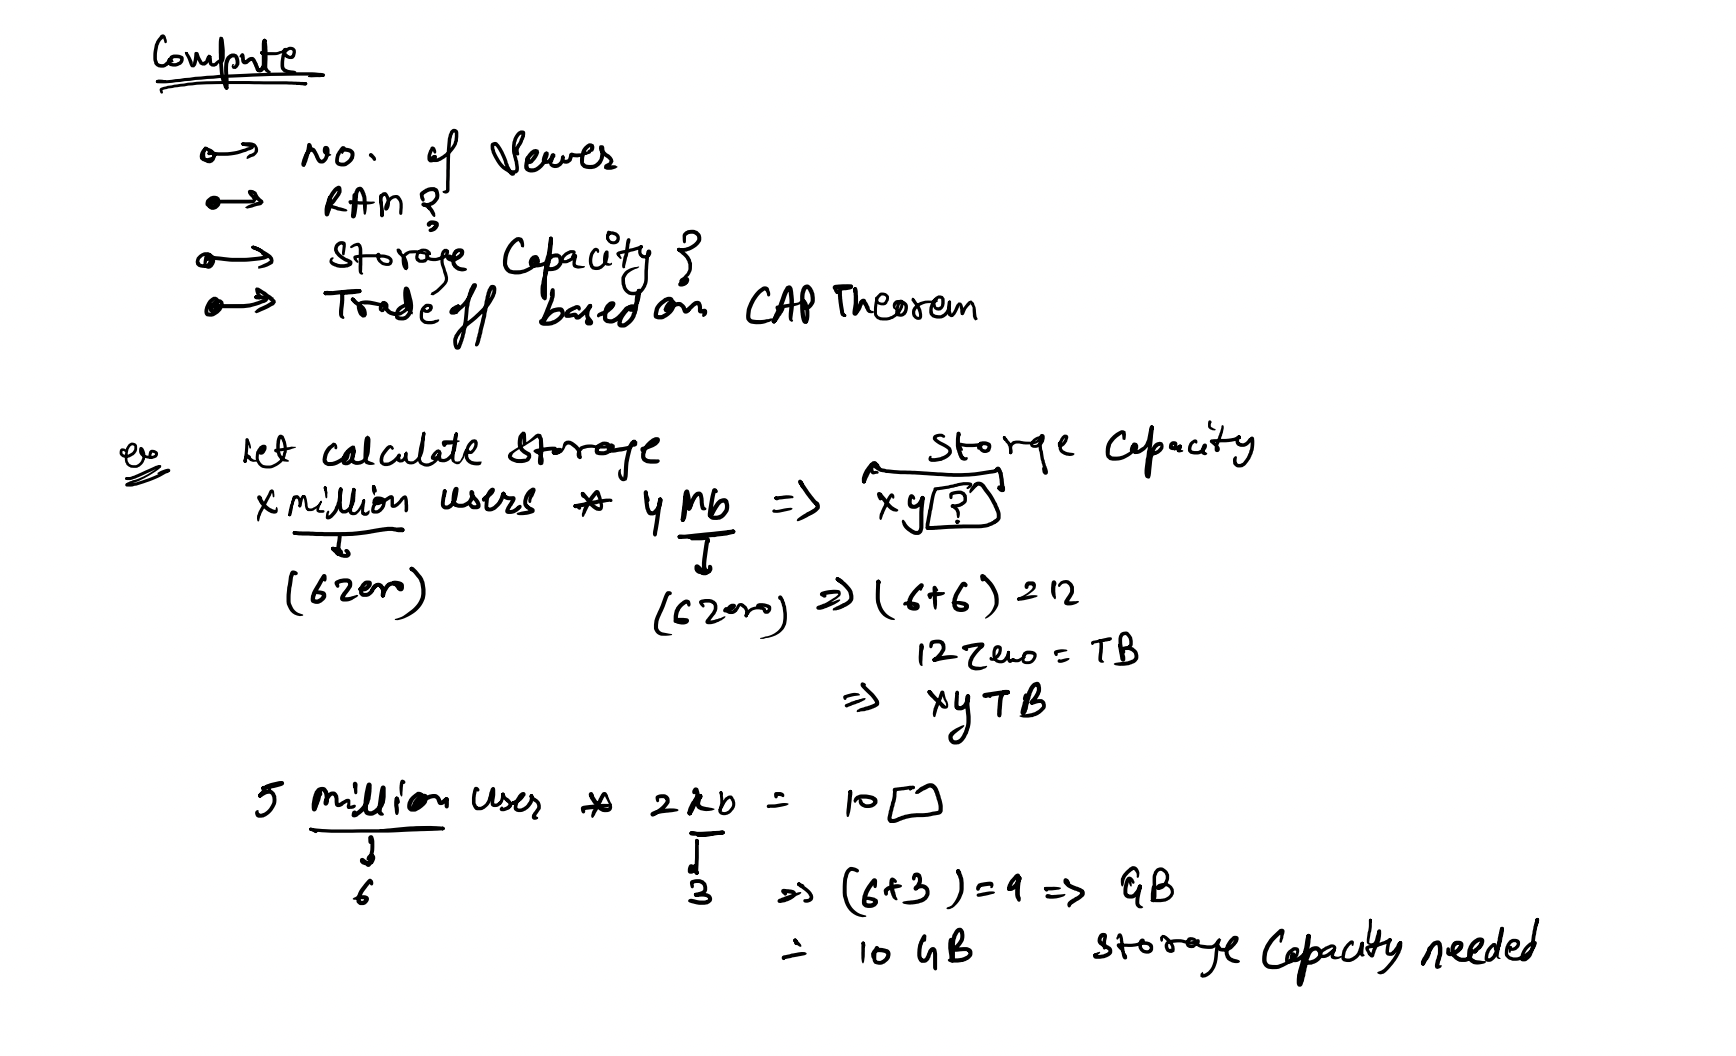 Compute
No. of Servers
RAM?
Storage Capacity?
Trade off based on CAP Theorem
ex Let calculate Storage
Storage Capacity
x million users * y Mb => xy[?]
(6 zero)
(6 zero) => (6+6) = 12
12 Zero = TB
=> xy TB
5 million User * 2 kb = 10
6
3 => (6+3) = 9 => GB
= 10 GB Storage Capacity needed